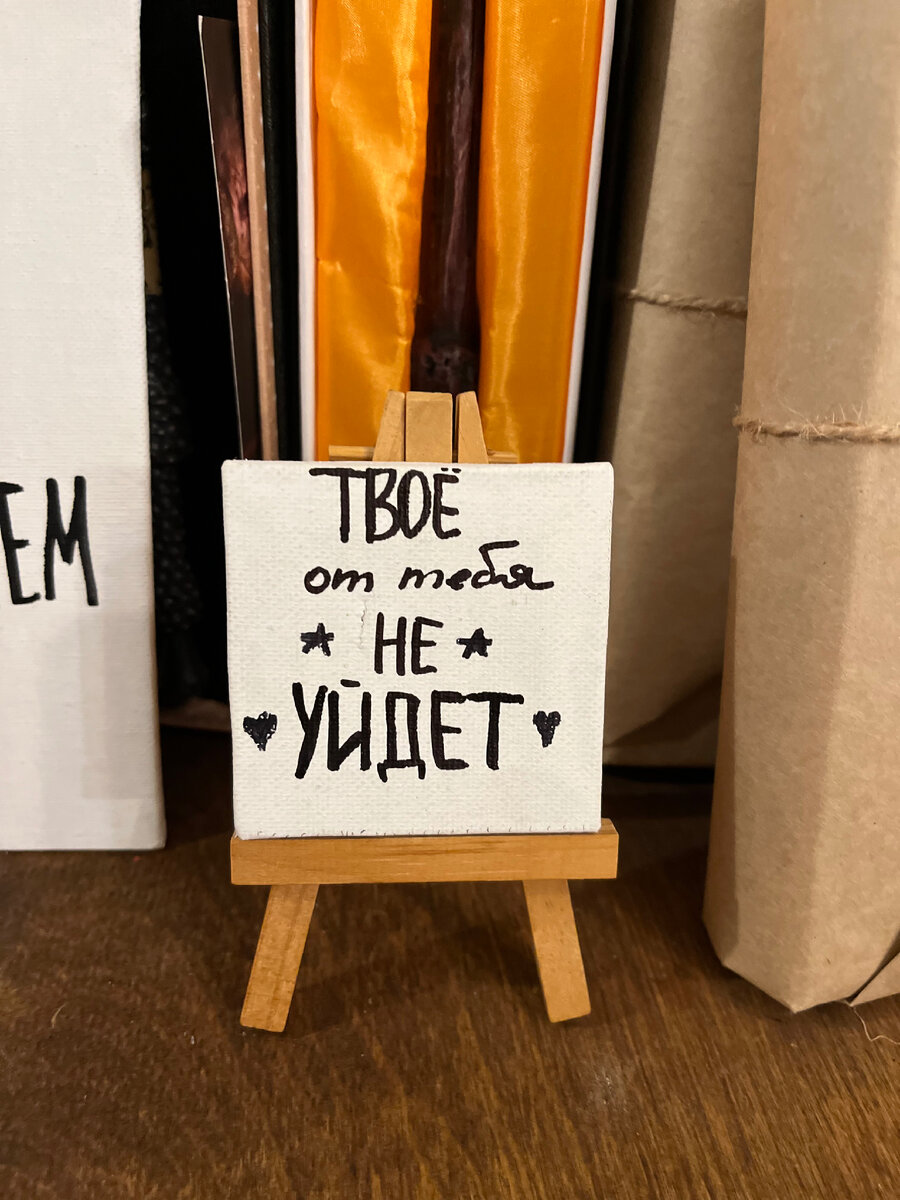 ТВОЁ
от тебя
НЕ
УЙДЕТ